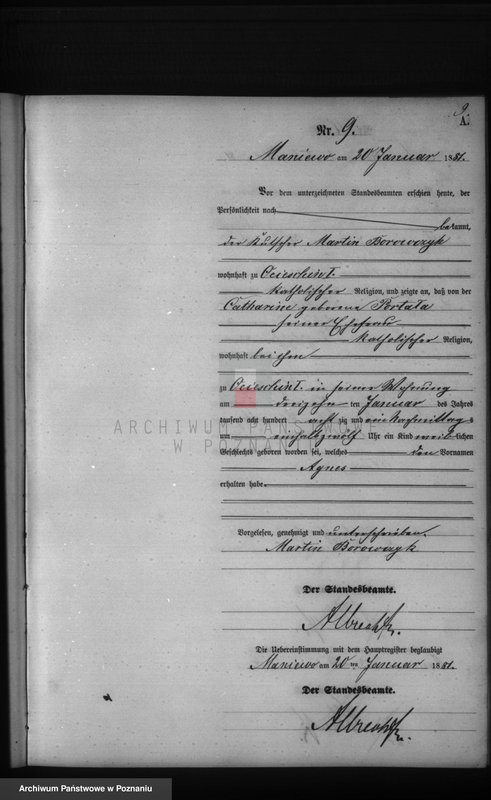 9.
A.
Nr. 9.
Maniewo am 20 Januar 1881.
Vor dem unterzeichneten Standesbeamten erschien heute, der
Persönlichkeit nach
bekannt,
der Kutscher Martin Borowczyk
wohnhaft zu
katholischer Religion, und zeigte an, daß von der
Catharine geborene
seiner Ehefrau
katholischer Religion,
wohnhaft bei ihm
zu in seiner Wohnung
am dreizehn ten Januar des Jahres
tausend acht hundert acht zig und ein Nachmittags
um Uhr ein Kind weib lichen
Geschlechts geboren worden sei, welches den Vornamen
Agnes
erhalten habe.
Vorgelesen, genehmigt und unterschrieben.
Martin Borowczyk
Der Standesbeamte.
Albrecht
Die Uebereinstimmung mit dem Hauptregister beglaubigt
Maniewo am 20 ten Januar 1881.
Der Standesbeamte.
Albrecht
ARCHIWUM PAŃSTWOWE
W POZNANIU
Archiwum Państwowe w Poznaniu